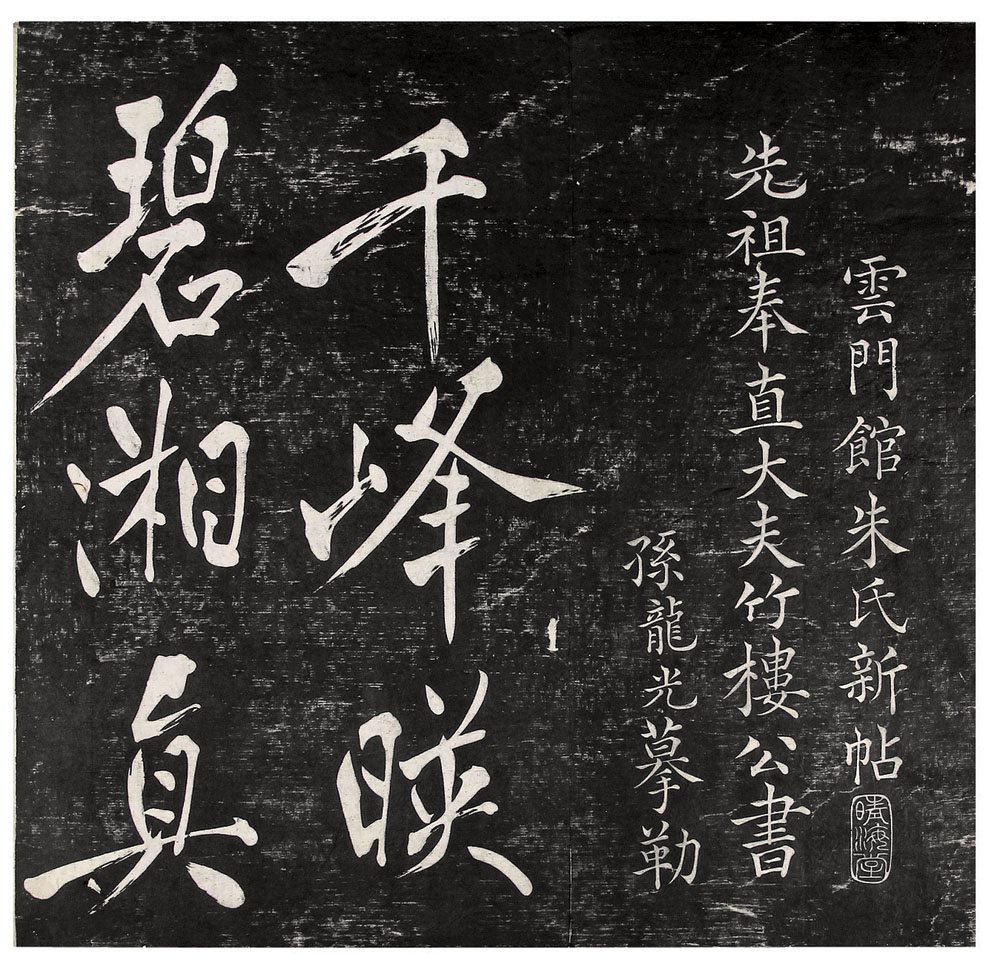 雲門館朱氏新帖
晴海堂
先祖奉直大夫竹樓公書
孫龍光摹勒
千峰暎
碧湘真